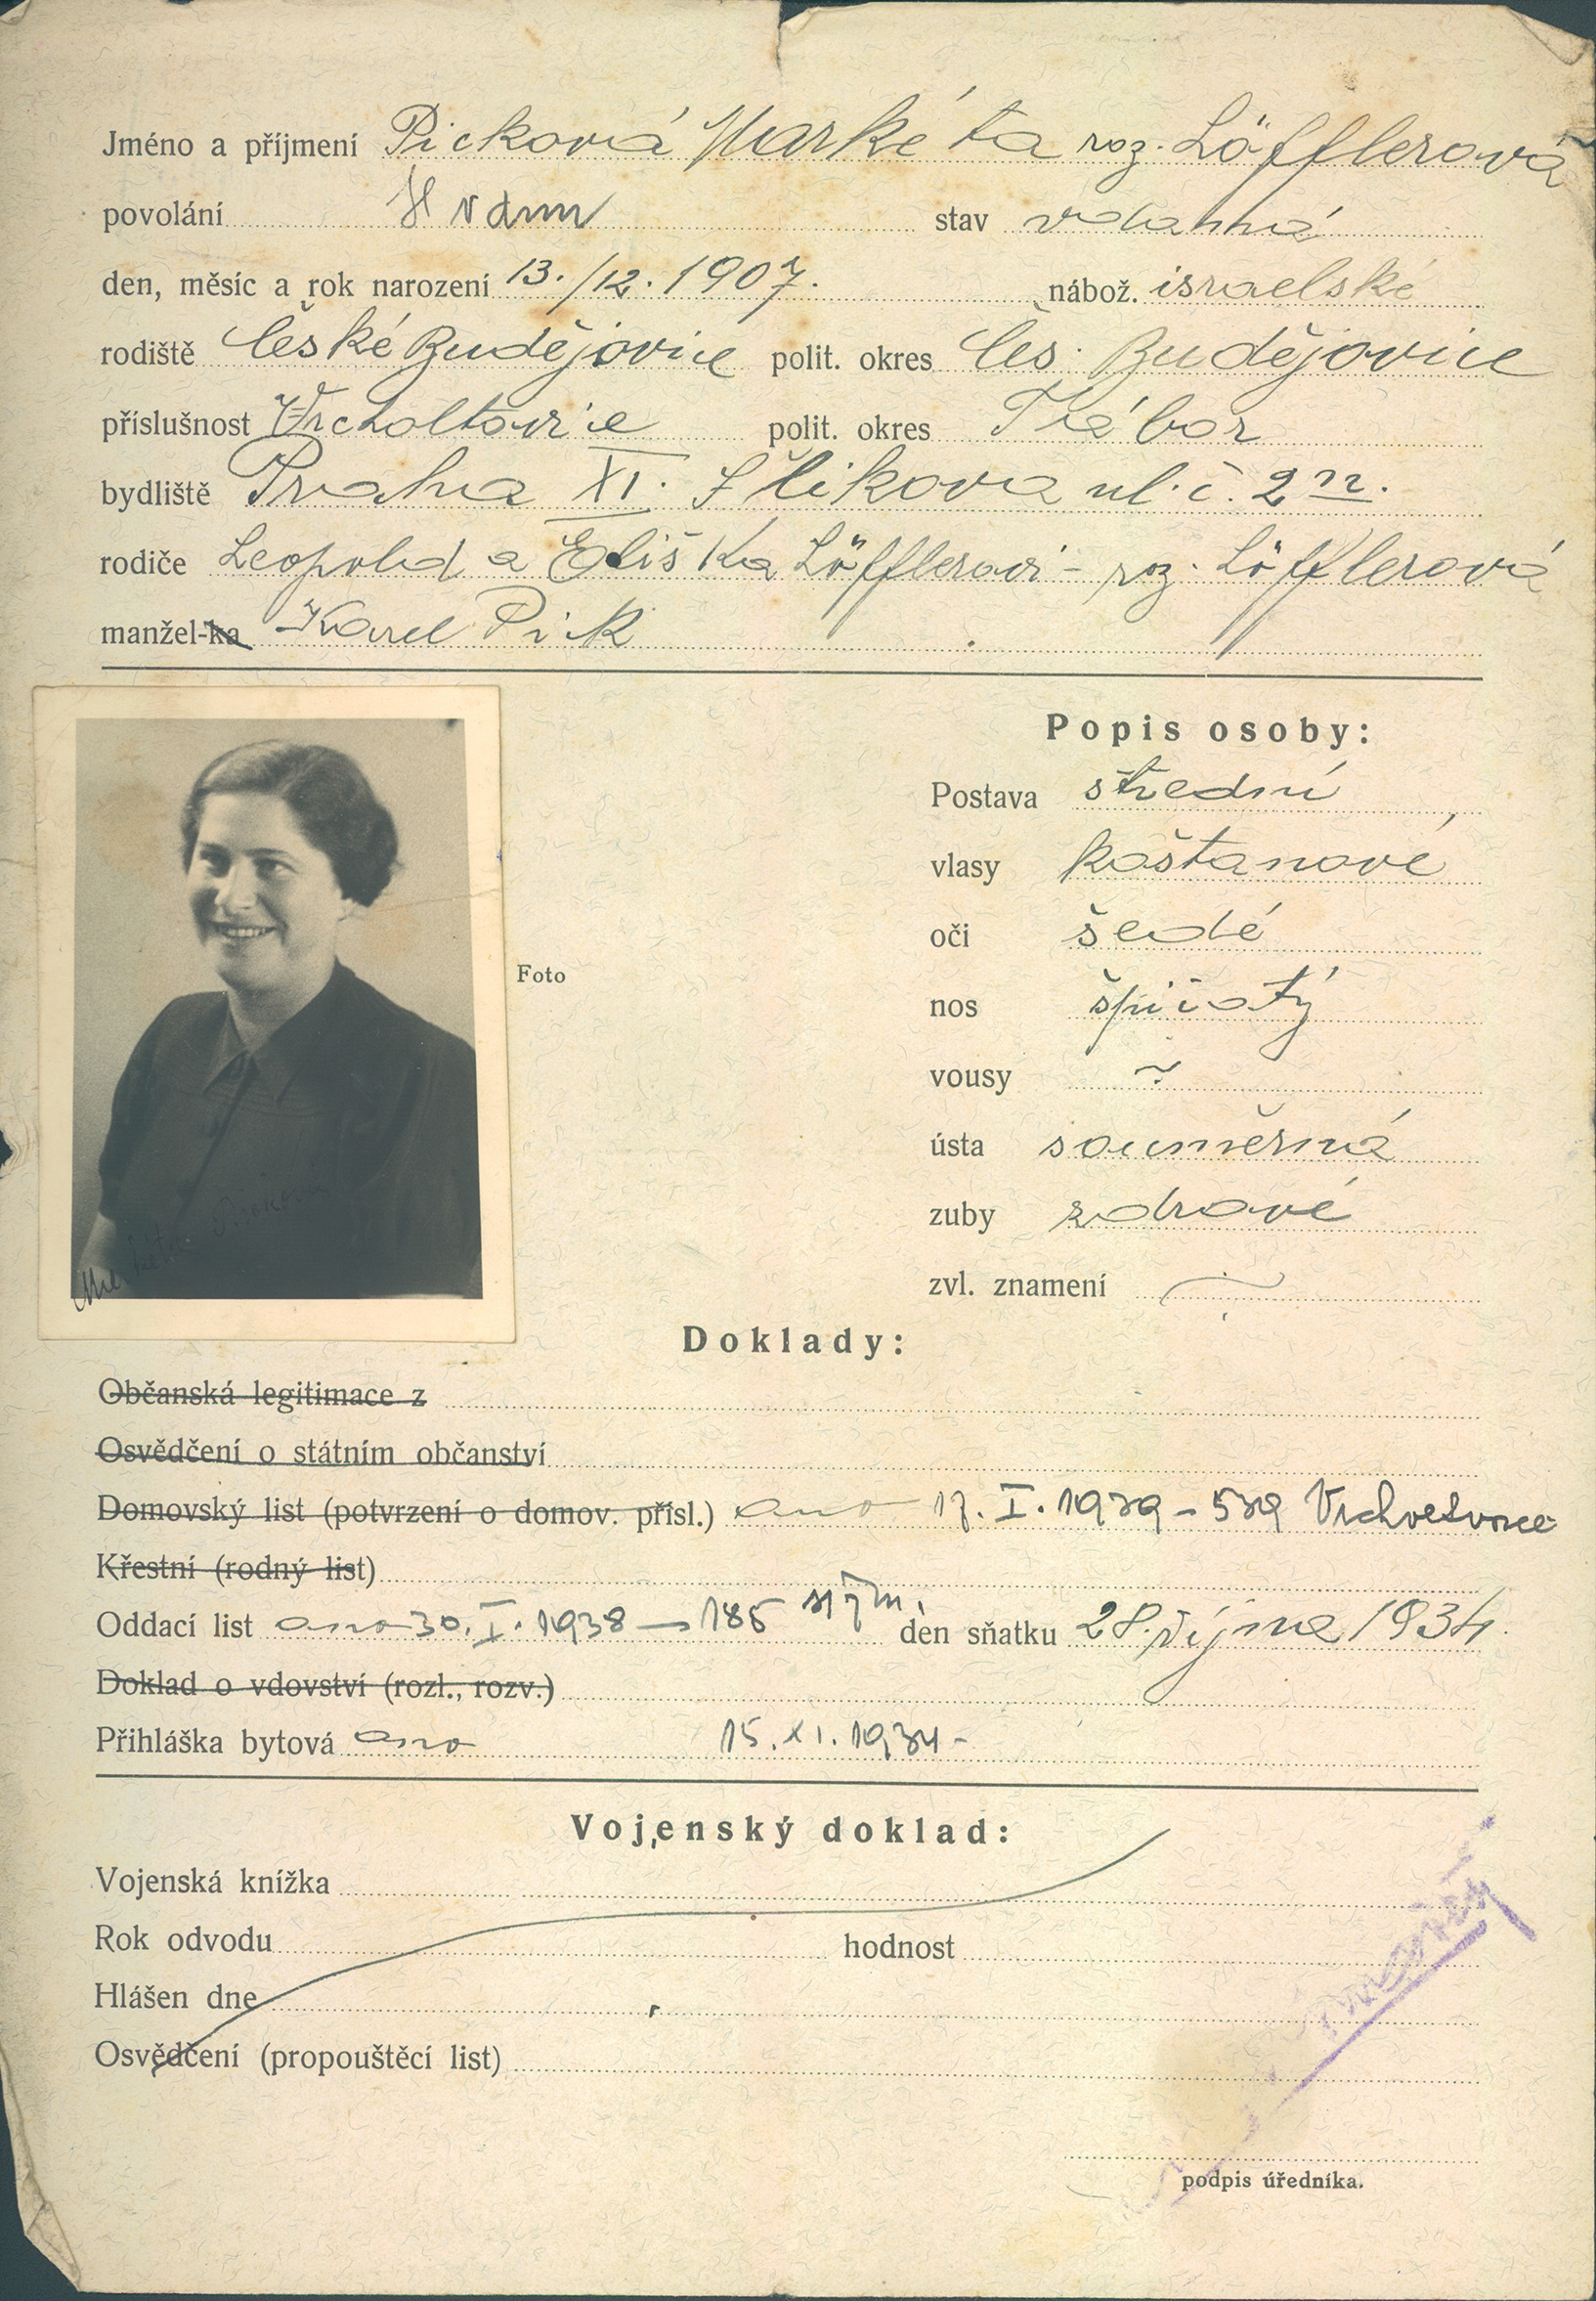 Jméno a příjmení Picková Markéta roz. Löfflerová
povolání V dom stav vdaná
den, měsíc a rok narození 13./12. 1907. nábož. israelské
rodiště České Budějovice polit. okres Čes. Budějovice
příslušnost polit. okres Tábor
bydliště Praha XI. Šlikova ul. č. 22.
rodiče Leopold a Eliška Löfflerovi - roz. Löfflerová
manžel-ka Karel Pick
Popis osoby:
Postava střední
vlasy kaštanové
oči šedé
Foto
nos špičatý
vousy
ústa souměrná
zuby zdravé
zvl. znamení
Markéta Picková
Doklady:
Občanská legitimace z
Osvědčení o státním občanství
Domovský list (potvrzení o domov. přísl.) ano 17. I. 1939 - 539
Křestní (rodný list)
Oddací list ano 30. I. 1938 - 185 den sňatku 28. října 1934.
Doklad o vdovství (rozl., rozv.)
Přihláška bytová ano 15. XI. 1934 -
Vojenský doklad:
Vojenská knížka
Rok odvodu hodnost
Hlášen dne
Osvědčení (propouštěcí list)
podpis úředníka.